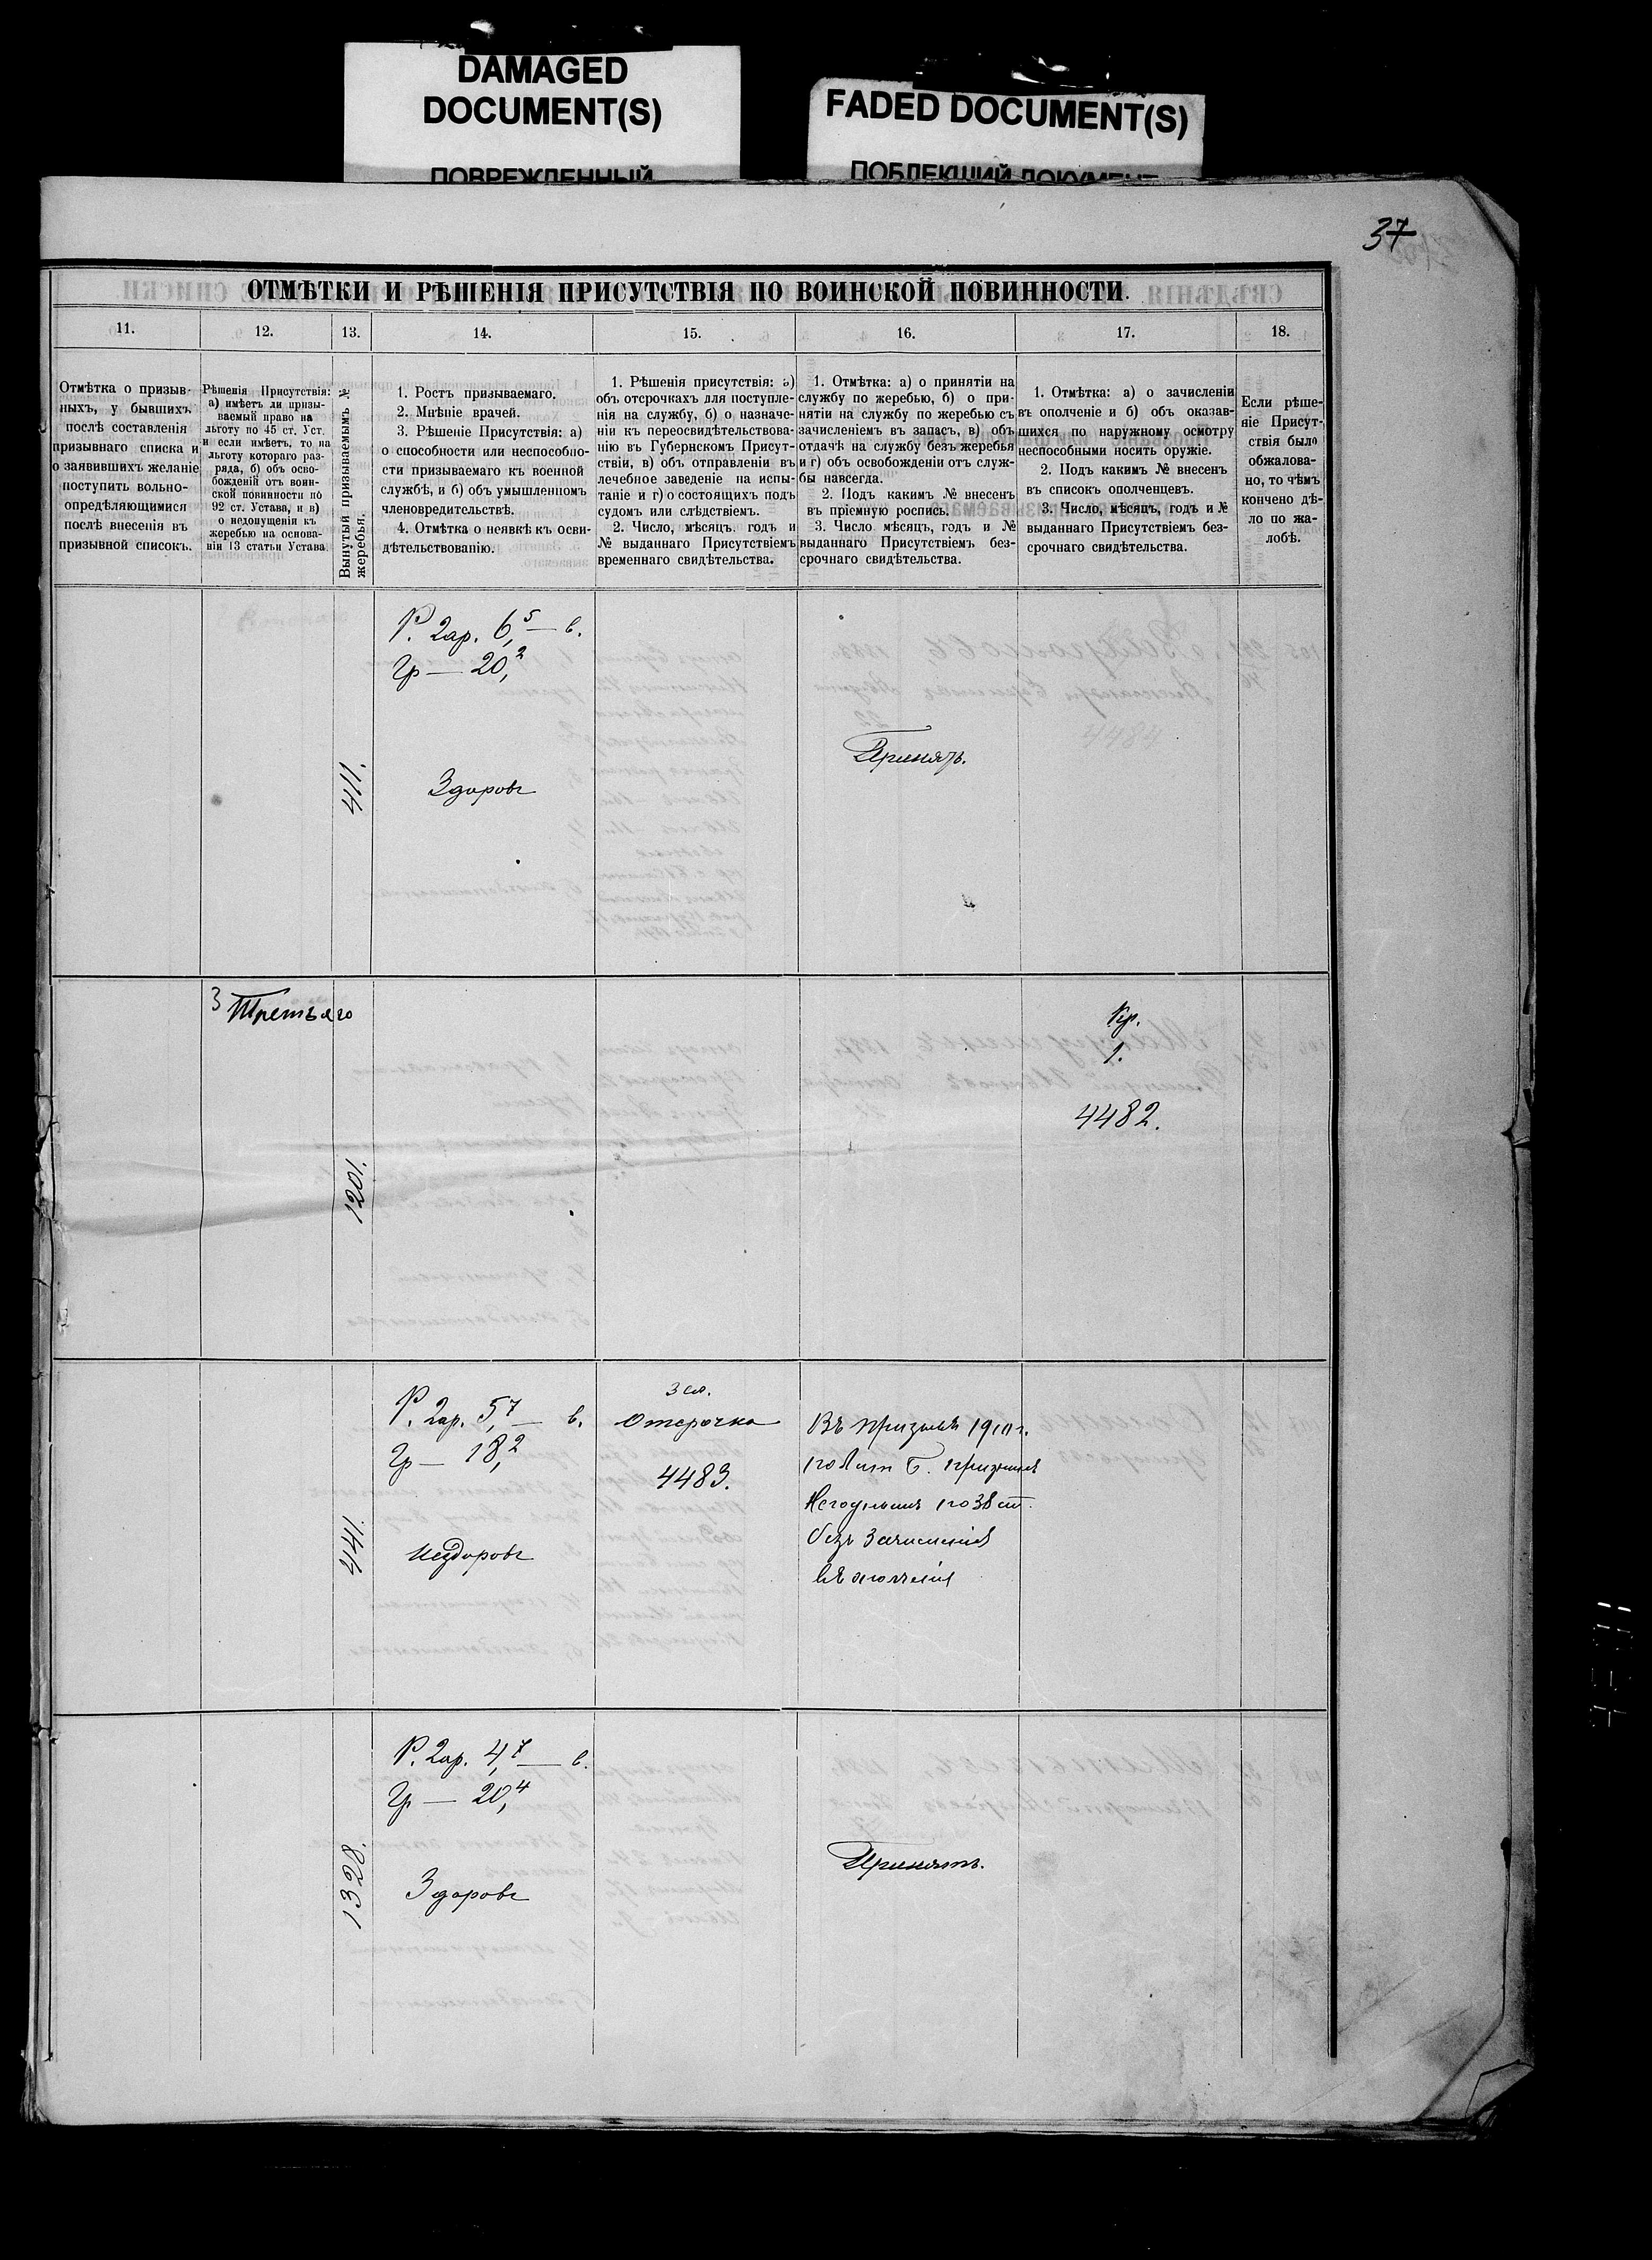 DAMAGED
DOCUMENT(S)
ПОВРЕЖДЕННЫЙ
FADED DOCUMENT(S)
ПОБЛЕКШИЙ ДОКУМЕНТ
37
ОТМѢТКИ И РѢШЕНІЯ ПРИСУТСТВІЯ ПО ВОИНСКОЙ ПОВИННОСТИ.
11.
12.
13.
14.
15.
16.
17.
18.
Отмѣтка о призыв-
ныхъ, у бывшихъ
послѣ составленія
призывнаго списка и
о заявившихъ желаніе
поступить вольно-
опредѣляющимися
послѣ внесенія въ
призывной списокъ.
Рѣшенія Присутствія:
а) имѣетъ ли призы-
ваемый право на
льготу по 45 ст. Уст.
и если имѣетъ, то на
льготу котораго раз-
ряда, б) объ осво-
божденій отъ воин-
ской повинности по
92 ст. Устава, и в)
о недопущеніи къ
жеребью на основа-
ніи 13 статьи Устава.
Вынутый призываемымъ №
жеребья.
1. Ростъ призываемаго.
2. Мнѣніе врачей.
3. Рѣшеніе Присутствія: а)
о способности или неспособно-
сти призываемаго къ военной
службѣ, и б) объ умышленномъ
членовредительствѣ.
4. Отмѣтка о неявкѣ къ осви-
дѣтельствованію.
1. Рѣшенія присутствія: а)
объ отсрочкахъ для поступле-
нія на службу, б) о назначе-
ніи къ переосвидѣтельствова-
нію въ Губернскомъ Присут-
ствіи, в) объ отправленіи въ
лечебное заведеніе на испы-
таніе и г) о состоящихъ подъ
судомъ или слѣдствіемъ.
2. Число, мѣсяцъ, годъ и
№ выданнаго Присутствіемъ
временнаго свидѣтельства.
1. Отмѣтка: а) о принятіи на
службу по жеребью, б) о при-
нятіи на службу по жеребью съ
зачисленіемъ въ запасъ, в) объ
отдачѣ на службу безъ жеребья
и г) объ освобожденіи отъ служ-
бы навсегда.
2. Подъ какимъ № внесенъ
въ пріемную роспись.
3. Число мѣсяцъ, годъ и №
выданнаго Присутствіемъ без-
срочнаго свидѣтельства.
1. Отмѣтка: а) о зачисленіи
въ ополченіе и б) объ оказав-
шихся по наружному осмотру
неспособными носить оружіе.
2. Подъ какимъ № внесенъ
въ списокъ ополченцевъ.
3. Число, мѣсяцъ, годъ и №
выданнаго Присутствіемъ без-
срочнаго свидѣтельства.
Если рѣше-
ніе Присут-
ствія было
обжалова-
но, то чѣмъ
кончено дѣ-
ло по жа-
лобѣ.
411.
Р. 2ар. 6,5 — в.
Гр — 20,2
Здоровъ
Принятъ.
3 Третьяго
1201.
Кр.
1.
4482.
441.
Р. 2ар. 5,7 — в.
Гр — 18,2
Нездоровъ
Отсрочка
4483.
Въ призывъ 1910 г.
по Лит Б. признанъ
Негоднымъ по 38 ст.
безъ Зачисленія
въ ополченія
1328.
Р. 2ар. 4,7 — в.
Гр — 20,4
Здоровъ
Принятъ.